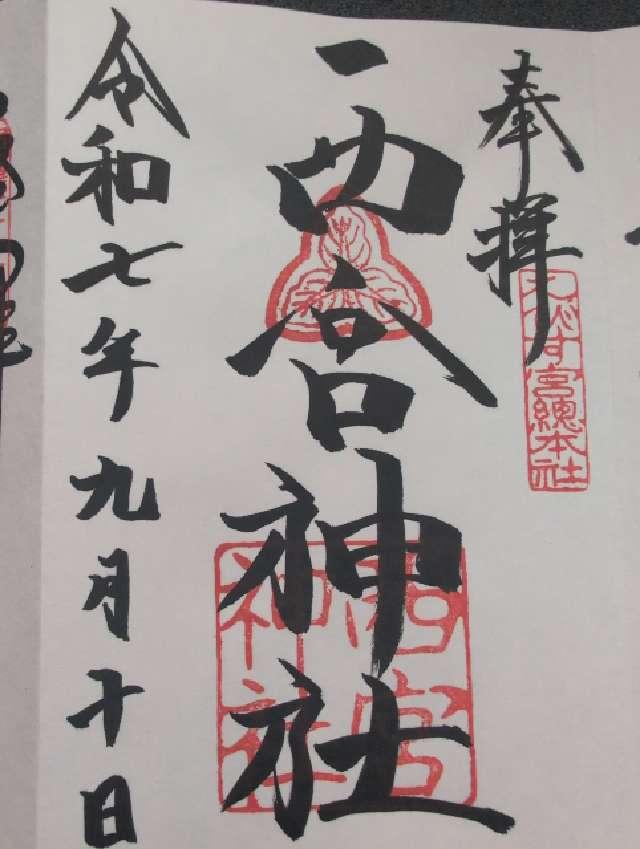 奉拝
えびす宮總本社
西宮神社
西宮神社
令和七年九月十日